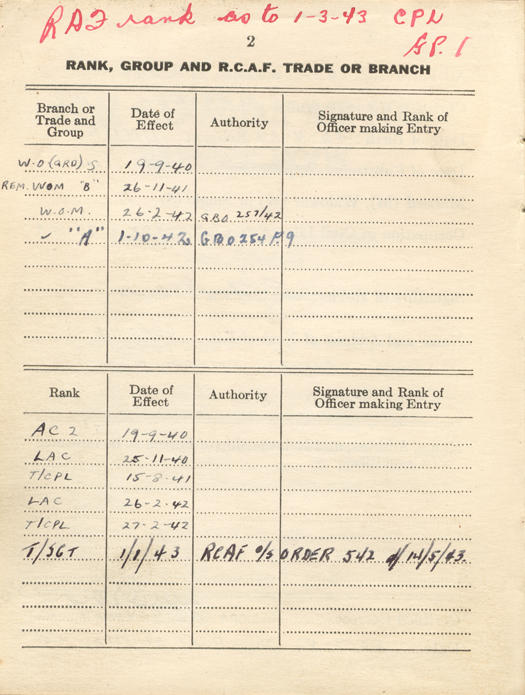 RAF rank as to 1-3-43 CPL
GP. 1
2
RANK, GROUP AND R.C.A.F. TRADE OR BRANCH
Branch or Trade and Group Date of Effect Authority Signature and Rank of Officer making Entry
W.O (GRD) S 19-9-40
REM. WOM "B" 26-11-41
W.O.M. 26-2-42 G.B.O. 257/42
" "A" 1-10-42 GBO 254 P.9
Rank Date of Effect Authority Signature and Rank of Officer making Entry
AC 2 19-9-40
LAC 25-11-40
T/CPL 15-8-41
LAC 26-2-42
T/CPL 27-2-42
T/SGT 1/1/43 RCAF o/s ORDER 542 d/14/5/43.